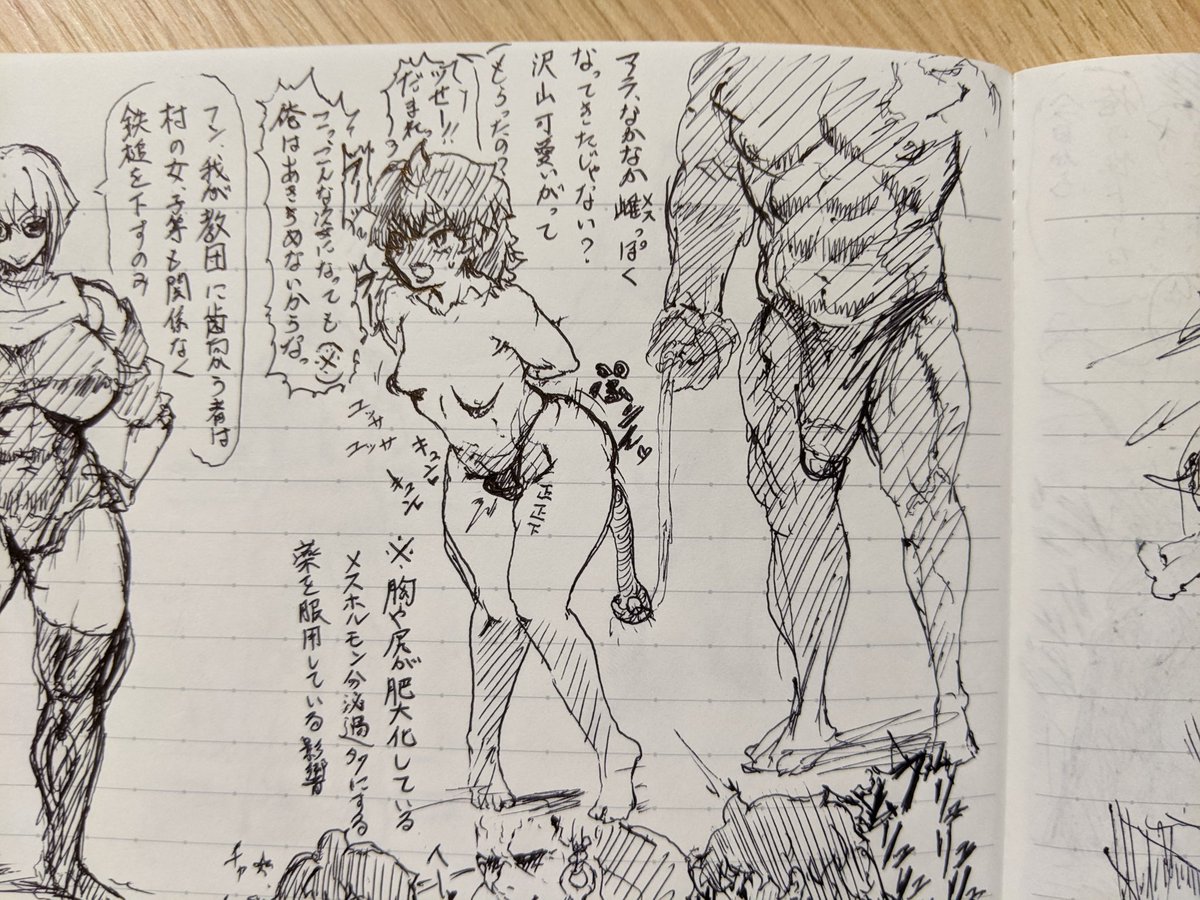 アラ、なかなか雌っぽく
メス
なってきたじゃない?
沢山可愛がって
もらったの?
ッせー!!
だまれっ
こっこんな姿になっても(※)
俺はあきらめないからなっ
フン、我が教団に歯向かう者は
村の女、子等も関係なく
鉄槌を下すのみ
ユッサ
ユッサ
キュン
キュン
正正下
※胸や尻が肥大化している
メスホルモン分泌過多にする
薬を服用している影響